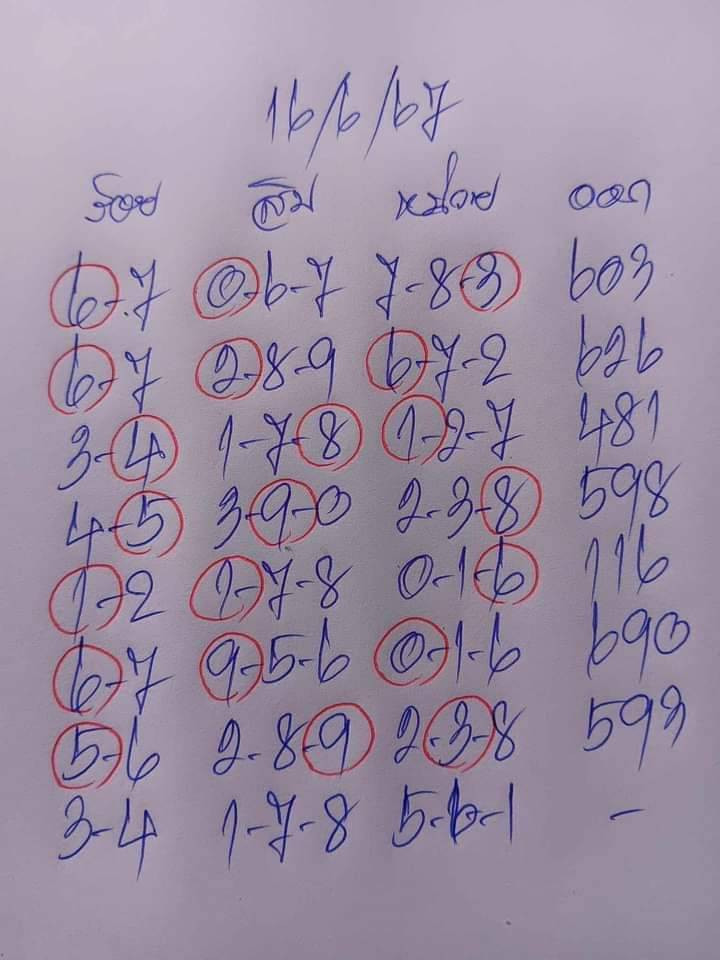 16/6/67
ร้อย สิบ หน่วย ออก
6-7 0-6-7 7-8-3 603
6-7 2-8-9 6-7-2 626
3-4 1-7-8 1-2-7 481
4-5 3-9-0 2-3-8 598
1-2 1-7-8 0-1-6 116
6-7 9-5-6 0-1-6 690
5-6 2-8-9 2-3-8 593
3-4 1-7-8 5-6-1 -